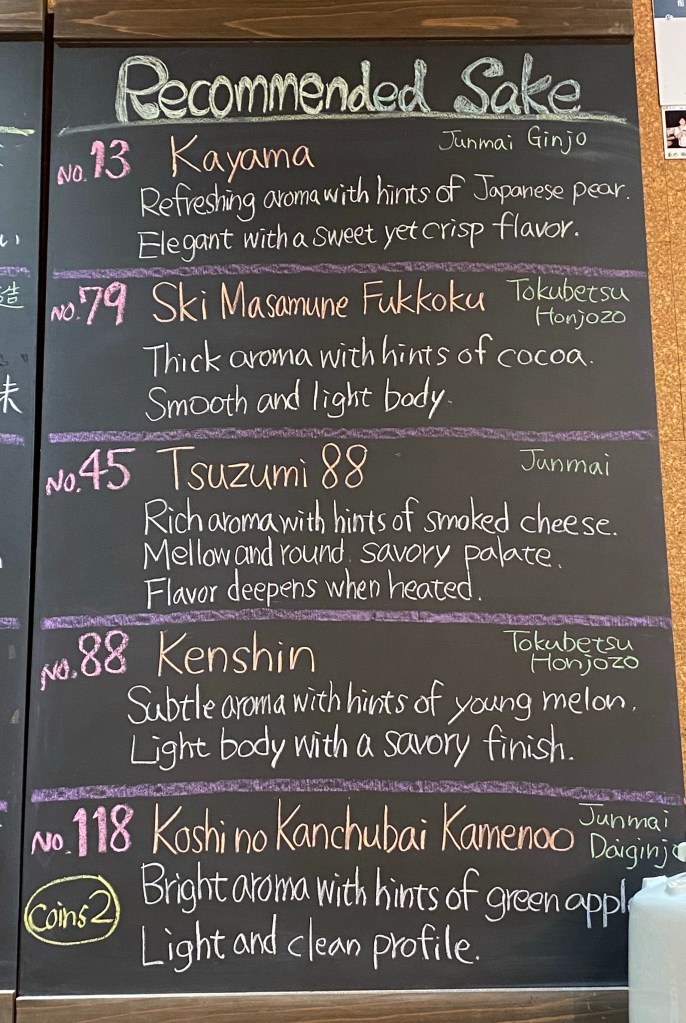 Recommended Sake
No. 13 Kayama Junmai Ginjo
Refreshing aroma with hints of Japanese pear.
Elegant with a sweet yet crisp flavor.
No. 79 Ski Masamune Fukkoku Tokubetsu
Honjozo
Thick aroma with hints of cocoa.
Smooth and light body.
No. 45 Tsuzumi 88 Junmai
Rich aroma with hints of smoked cheese.
Mellow and round. savory palate.
Flavor deepens when heated.
No. 88 Kenshin Tokubetsu
Honjozo
Subtle aroma with hints of young melon.
Light body with a savory finish.
No. 118 Koshi no Kanchubai Kamenoo Junmai
Daiginj
Coins 2
Bright aroma with hints of green appl
Light and clean profile.
い
造
味